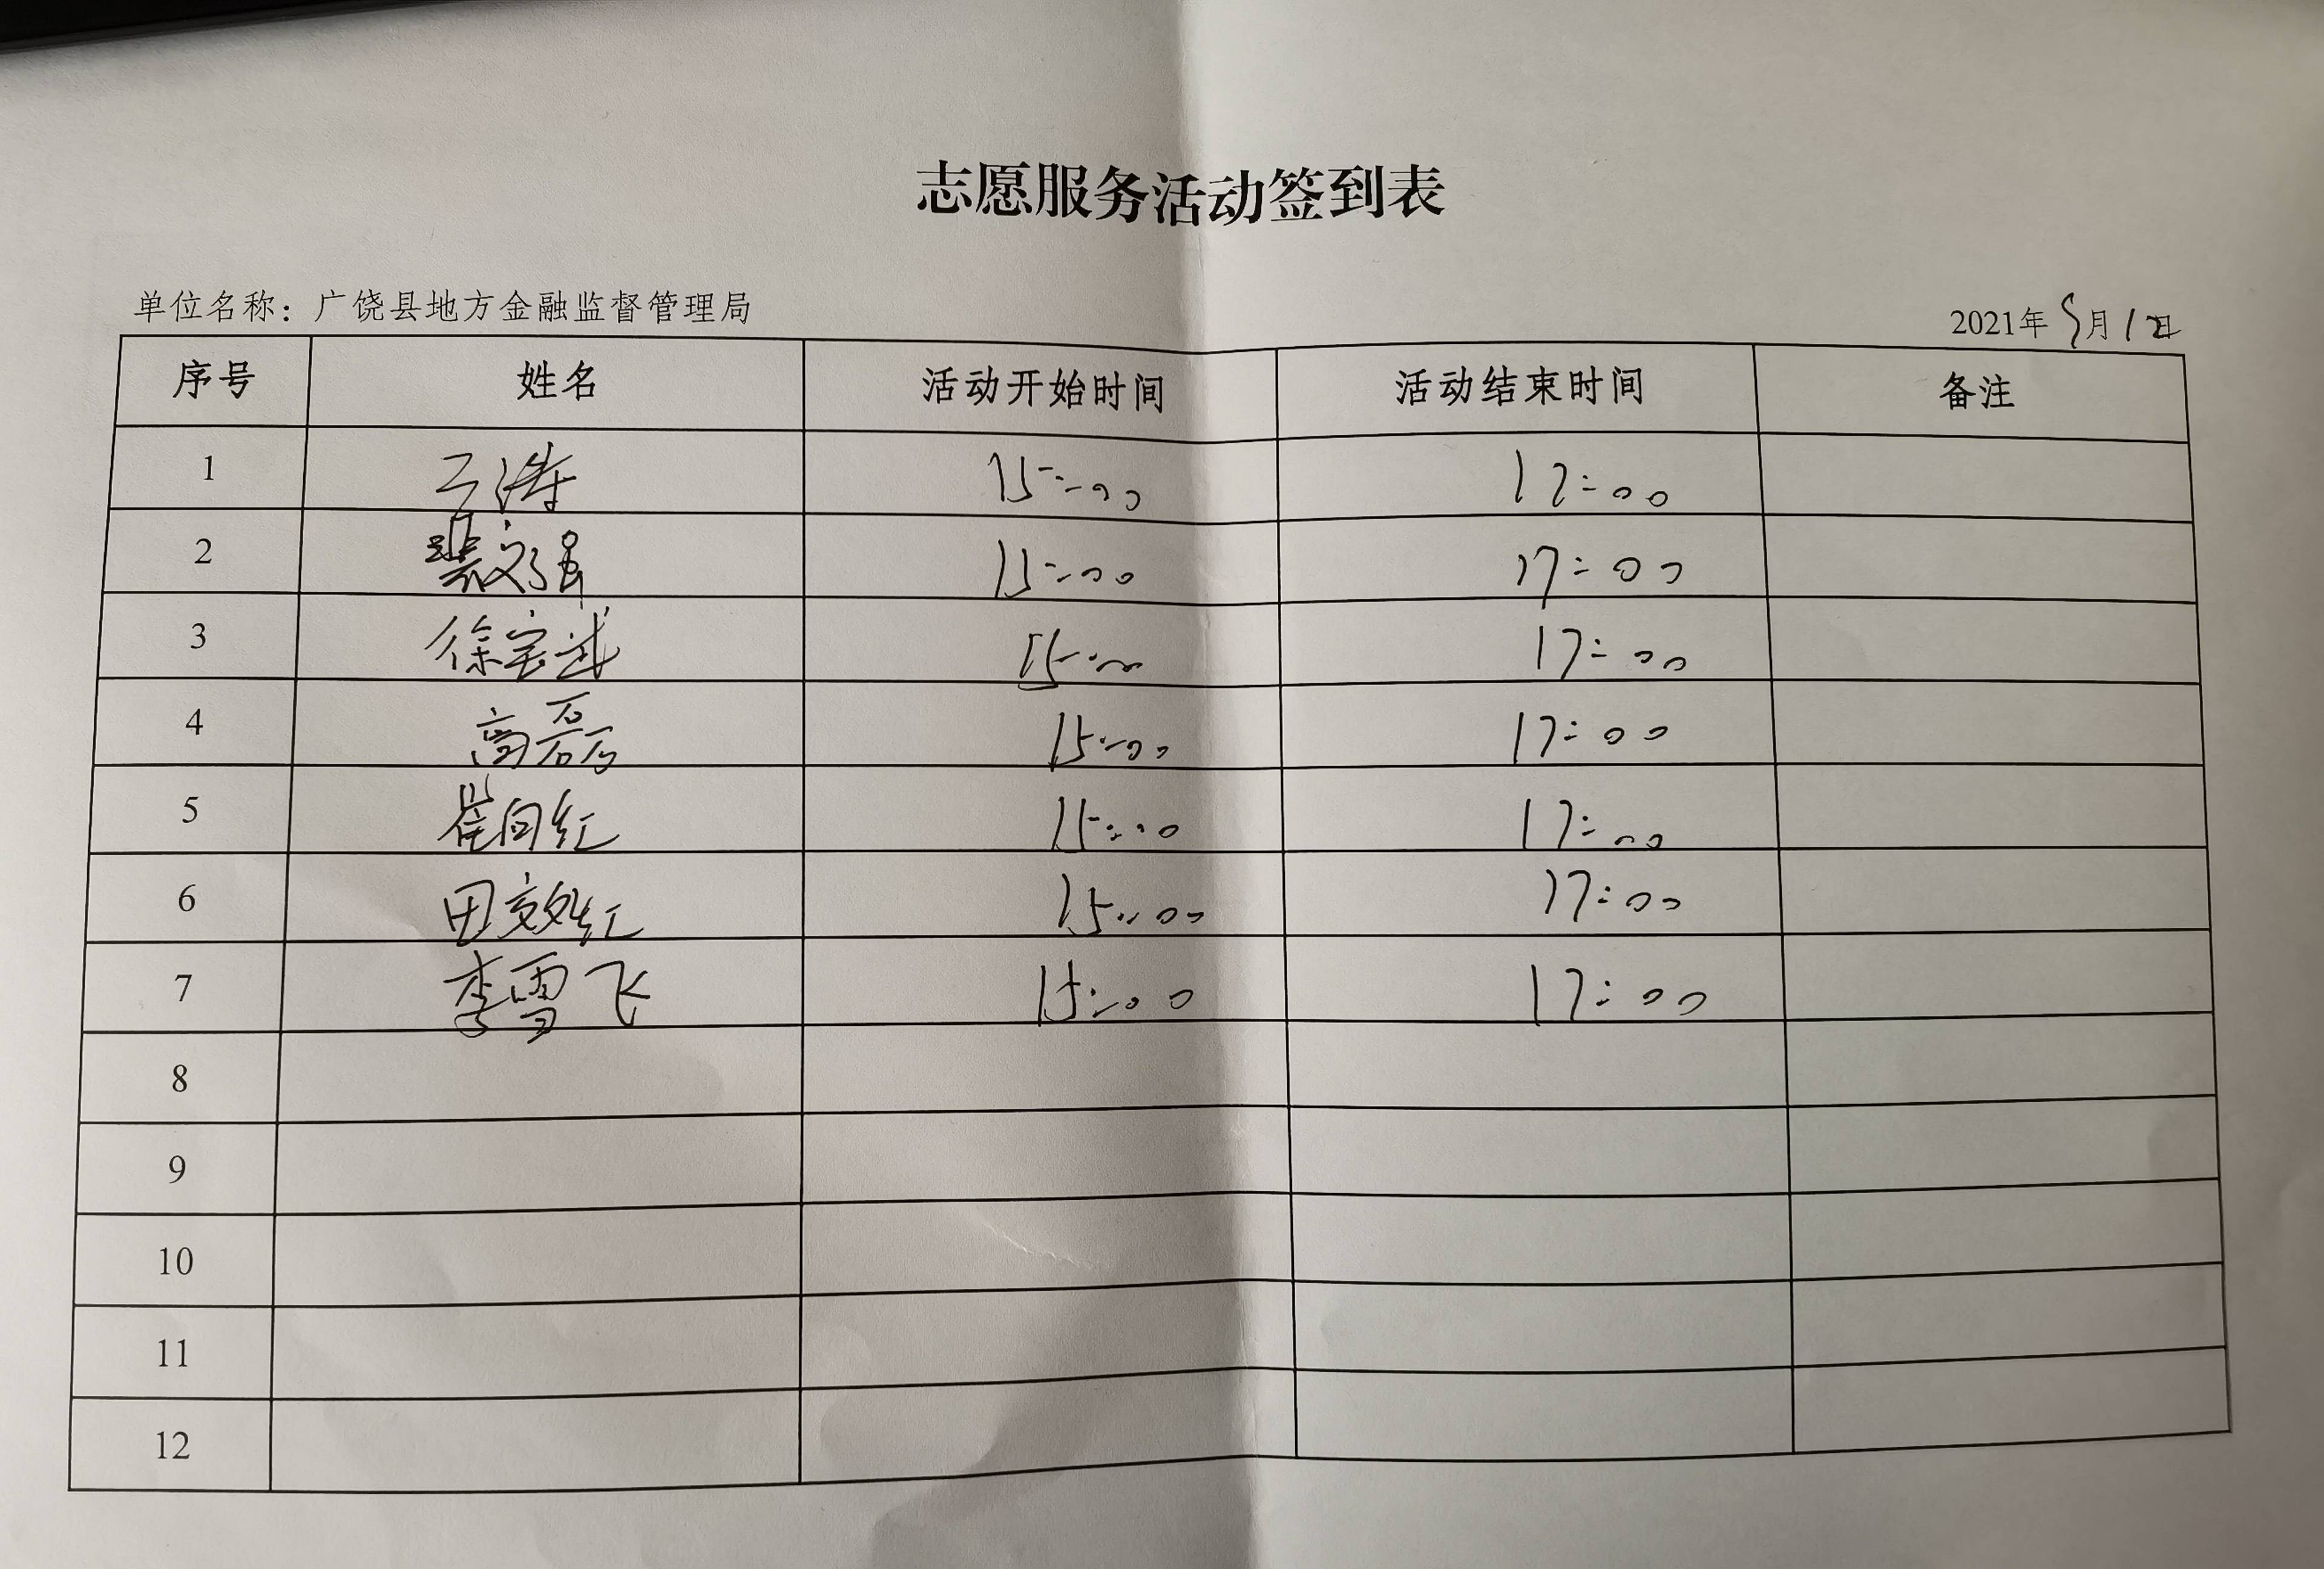 志愿服务活动签到表
单位名称：广饶县地方金融监督管理局
2021年5月12日
序号 姓名 活动开始时间 活动结束时间 备注
1 15:00 17:00
2 裴文强 15:00 17:00
3 徐宝武 15:00 17:00
4 高磊 15:00 17:00
5 崔向红 15:00 17:00
6 田效红 15:00 17:00
7 李雪飞 15:00 17:00
8
9
10
11
12